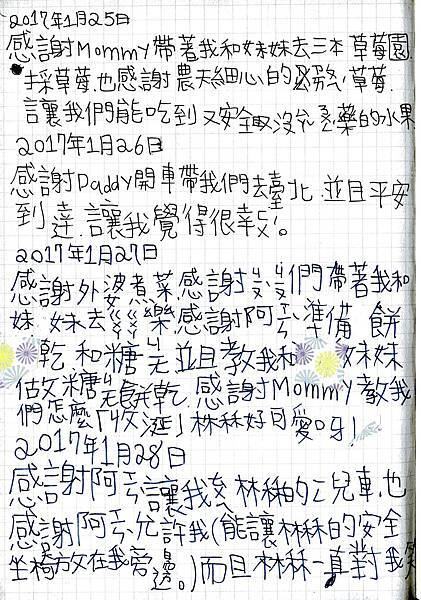 2017年1月25日
感謝Mommy帶著我和妹妹去三本草莓園
採草莓.也感謝農夫細心的草莓.
讓我們能吃到又安全又沒藥的水果
2017年1月26日
感謝Daddy開車帶我們去臺北.並且平安
到達.讓我覺得很幸!。
2017年1月27日
感謝外婆煮菜.感謝們帶著我和
妹妹去樂.感謝阿準備餅
乾和糖並且教我和妹妹
做糖餅乾.感謝Mommy教我
們怎麼「收涎」林秝好可愛呀!
2017年1月28日
感謝阿讓我林秝的兒車.也
感謝阿允許我(能讓林秝的安全
坐椅放在我旁邊。)而且林秝一直對我笑